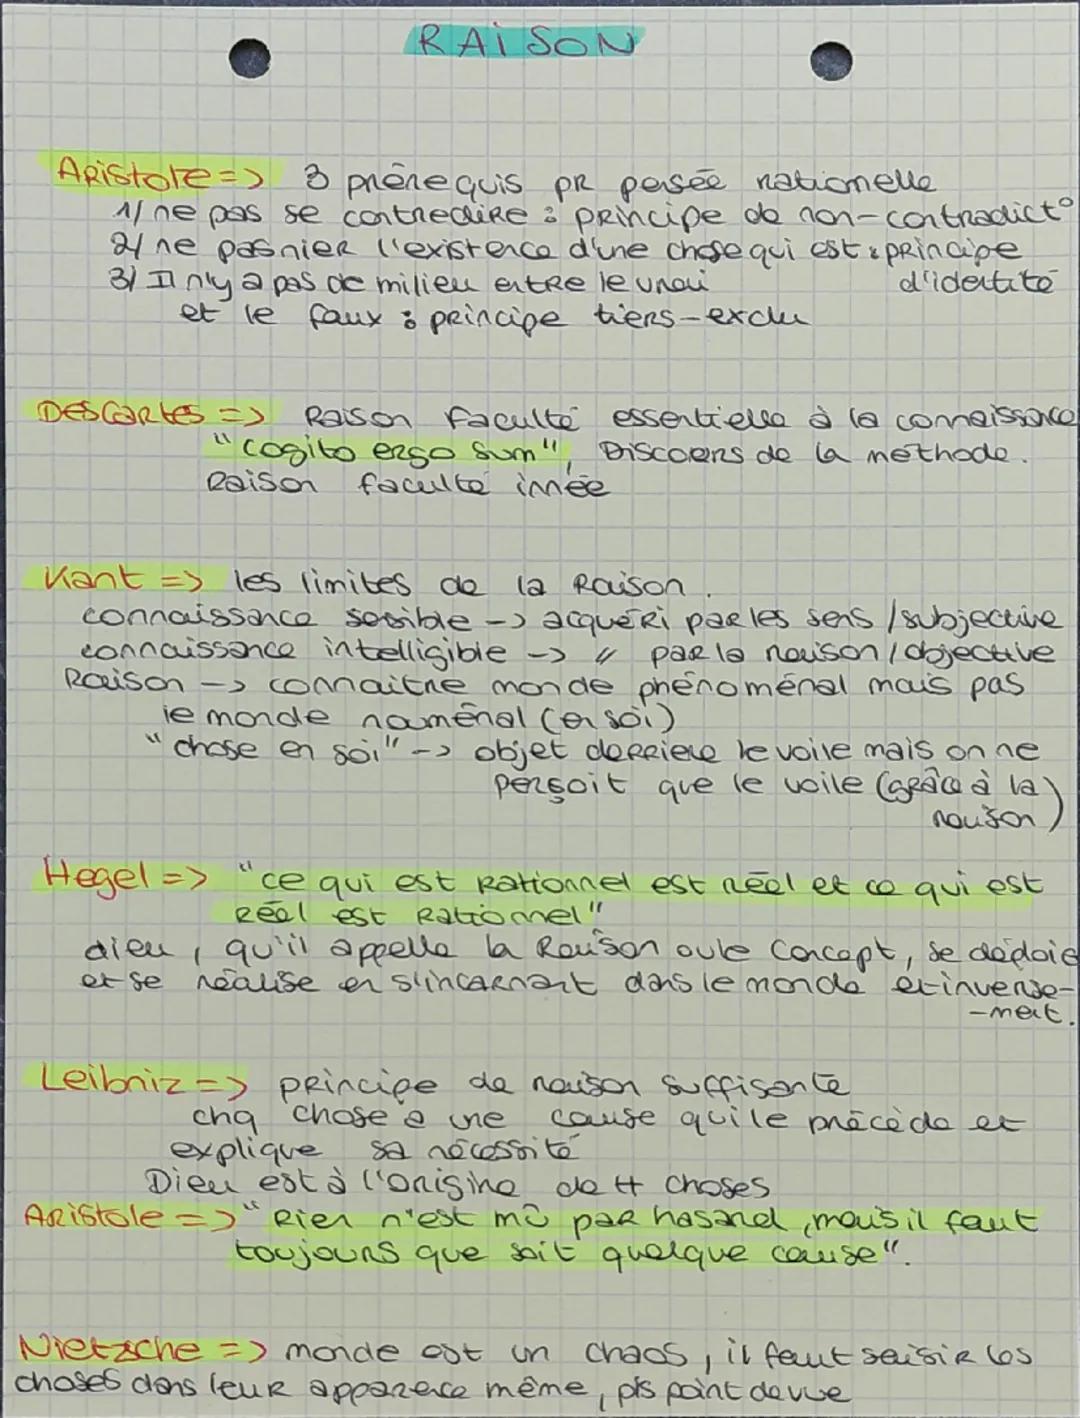 RAISON
Aristote => 3 prérequis pr pensée rationelle
1/ ne pas se contredire : principe de non-contradict°
2/ ne pas nier l'existence d'une chose qui est : principe
d'identité
3/ Il n'y a pas de milieu entre le vrai
et le faux : principe tiers-exclu
Descartes => Raison faculté essentielle à la connaissance
"cogito ergo sum", Discours de la méthode.
Raison faculté innée
Kant => les limites de la Raison.
connaissance sensible -> acquéri par les sens / subjective
connaissance intelligible -> " par la raison / objective
Raison -> connaitre monde phénoménal mais pas
le monde nouménal (en soi)
"chose en soi" -> objet derriere le voile mais on ne
perçoit que le voile (grâce à la
raison)
Hegel => "ce qui est rationnel est réel et ce qui est
réel est rationnel"
dieu, qu'il appelle la Raison ou le Concept, se déploie
et se réalise en s'incarnant dans le monde et inverse-
-ment.
Leibniz => principe de raison suffisante
chq chose a une cause qui le précède et
explique sa nécessité
Dieu est à l'origine de tt choses
Aristote => "Rien n'est mû par hasard, mais il faut
toujours que soit quelque cause".
Nietzsche => monde est un chaos, il faut saisir les
choses dans leur apparence même, pls point de vue